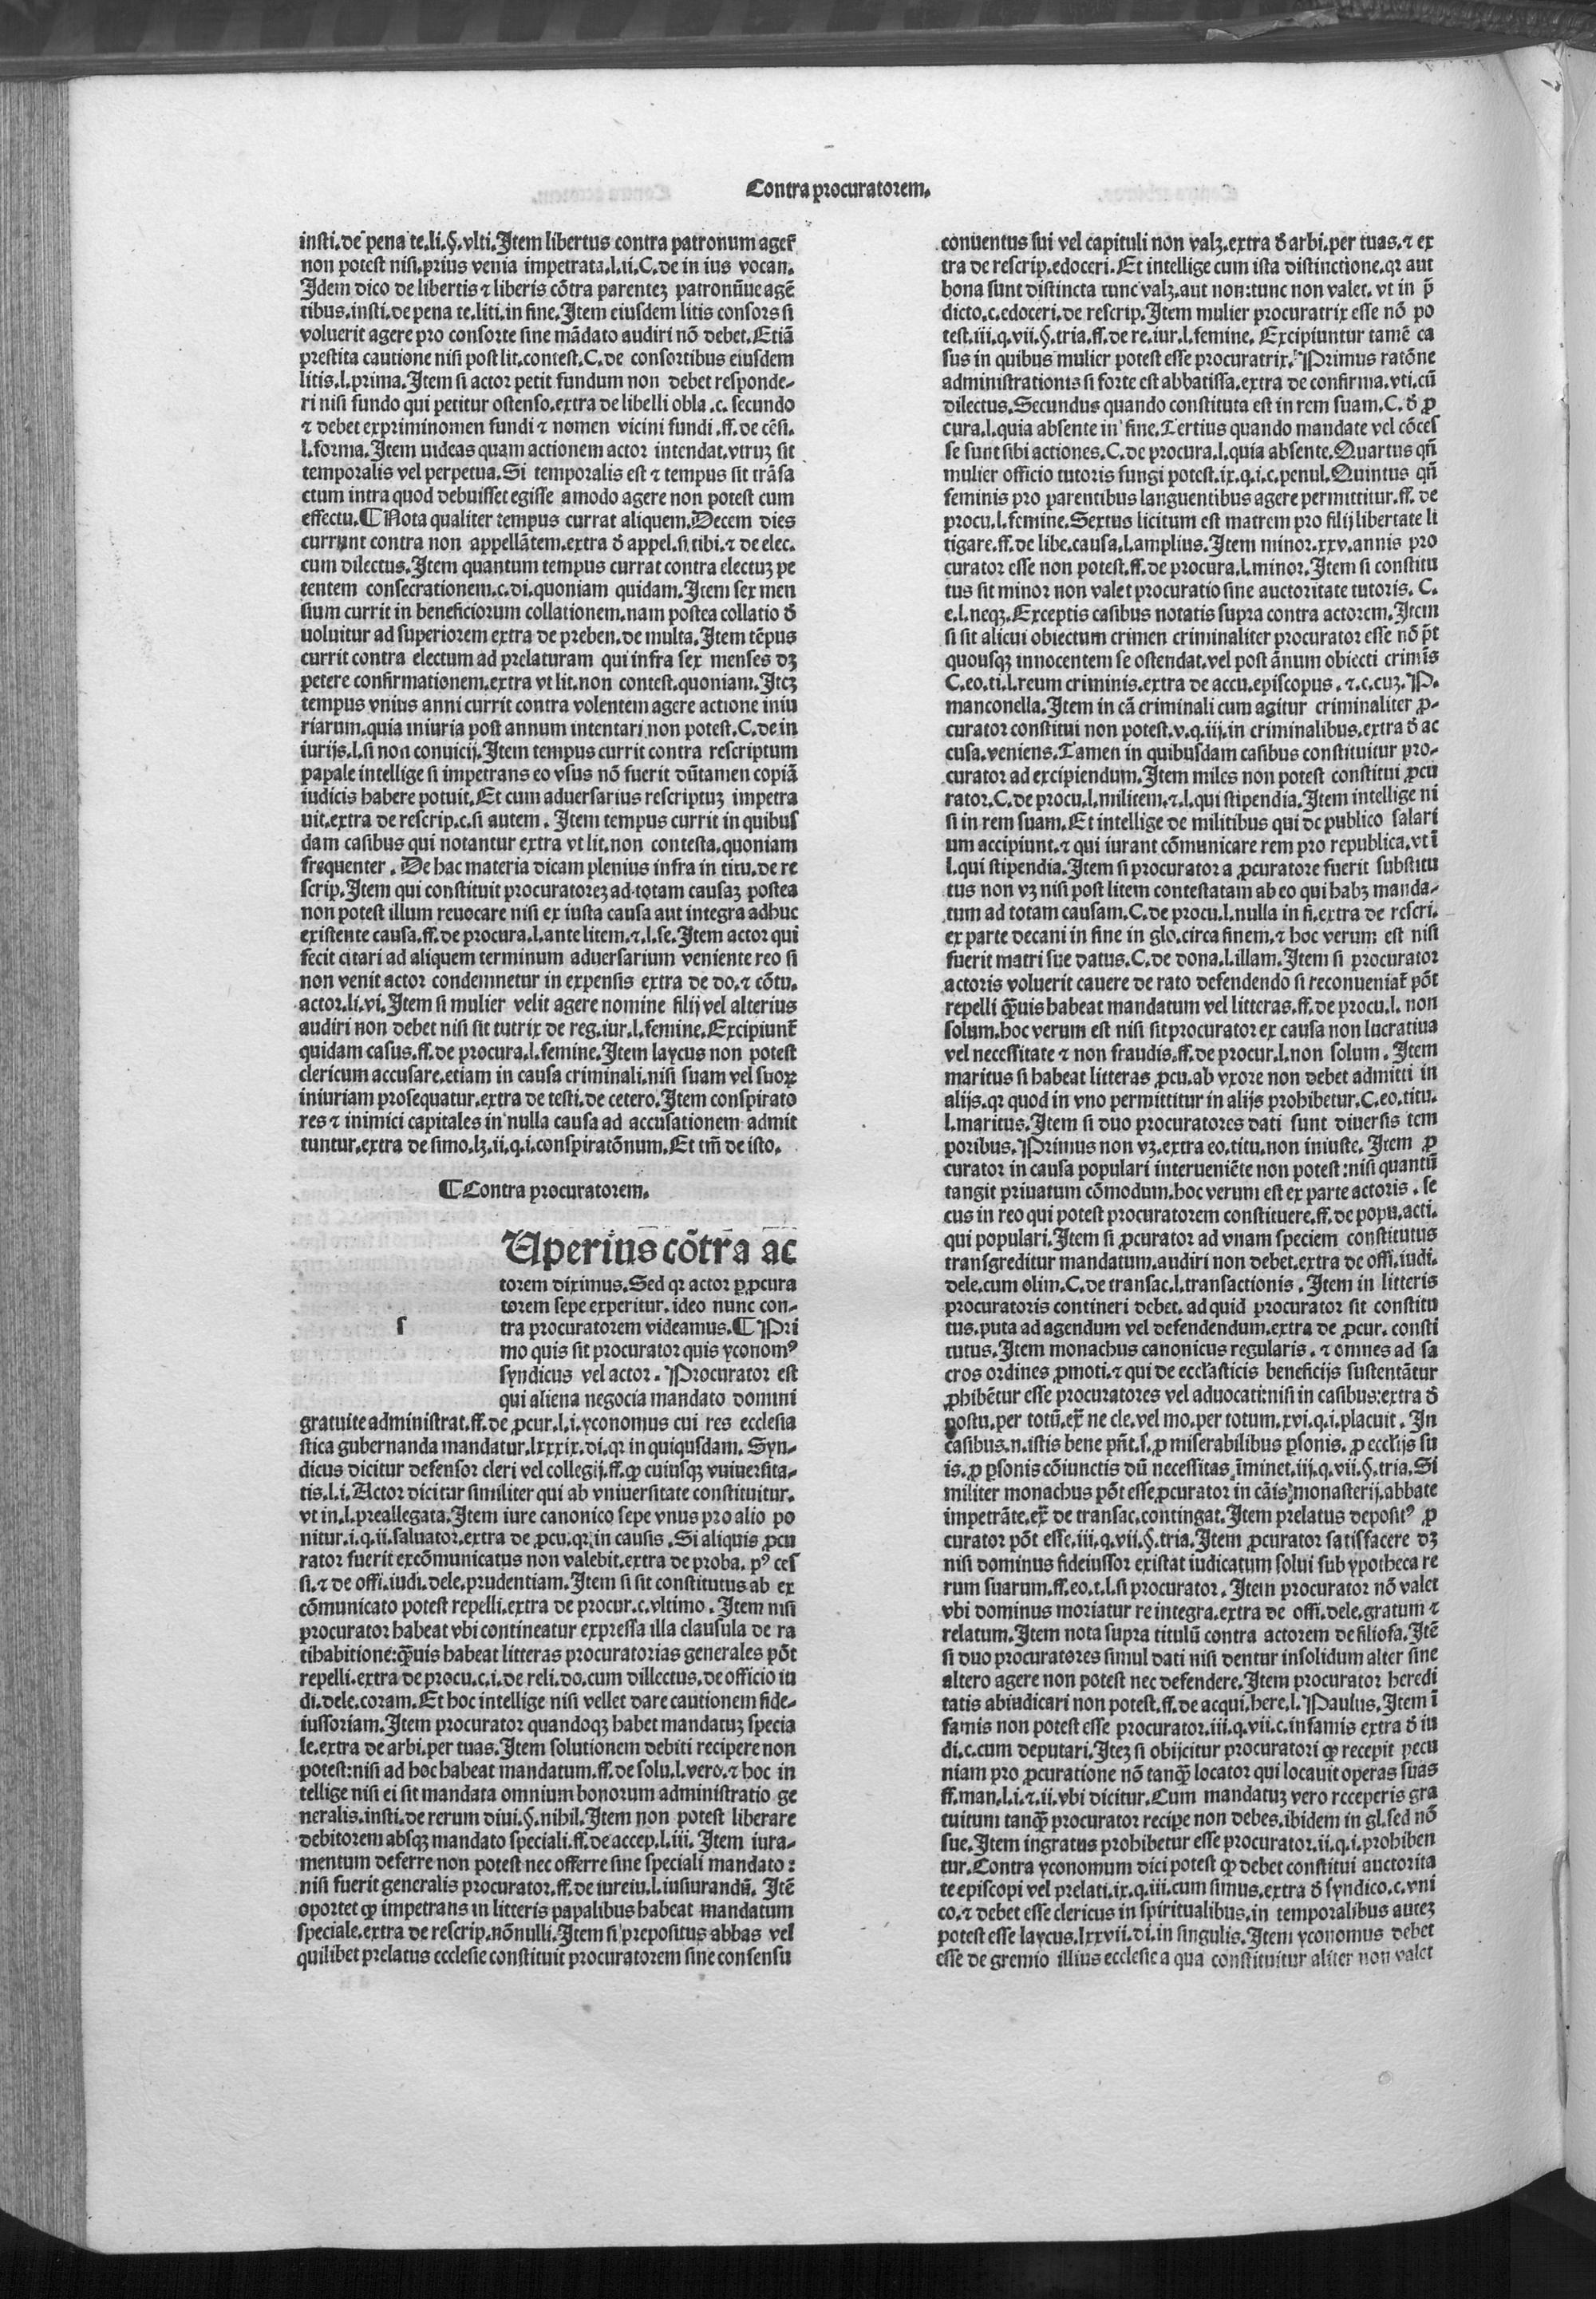 Contra procuratorem.
insti.de pena te.li.§.vlti.Item libertus contra patronum ageꝶ
non potest nisi.prius venia impetrata.l.ii.C.de in ius vocan.
Idem dico de libertis ⁊ liberis cōtra parentez patronūue agē
tibus.insti.de pena te.liti.in fine.Item eiusdem litis consors si
voluerit agere pro consorte sine mādato audiri nō debet.Etiā
prestita cautione nisi post lit.contest.C.de consortibus eiusdem
litis.l.prima.Item si actor petit fundum non debet responde-
ri nisi fundo qui petitur ostenso.extra de libelli obla.c.secundo
⁊ debet expriminomen fundi ⁊ nomen vicini fundi.ff.de cēsi.
l.forma.Item uideas quam actionem actor intendat.vtruz sit
temporalis vel perpetua.Si temporalis est ⁊ tempus sit trāsa
ctum intra quod debuisset egisse amodo agere non potest cum
effectu.¶Nota qualiter tempus currat aliquem.Decem dies
currunt contra non appellātem.extra ð appel.si tibi.⁊ de elec.
cum dilectus.Item quantum tempus currat contra electuz pe
tentem consecrationem.c.di.quoniam quidam.Item sex men
sium currit in beneficiorum collationem.nam postea collatio ð
uoluitur ad superiorem extra de preben.de multa.Item tēpus
currit contra electum ad prelaturam qui infra sex menses dꝫ
petere confirmationem.extra vt lit.non contest.quoniam.Iteꝫ
tempus vnius anni currit contra volentem agere actione iniu
riarum.quia iniuria post annum intentari non potest.C.de in
iurijs.l.si non conuicij.Item tempus currit contra rescriptum
papale intellige si impetrans eo vsus nō fuerit dūtamen copiā
iudicis habere potuit.Et cum aduersarius rescriptuz impetra
uit.extra de rescrip.c.si autem.Item tempus currit in quibus
dam casibus qui notantur extra vt lit.non contesta.quoniam
frequenter.De hac materia dicam plenius infra in titu.de re
scrip.Item qui constituit procuratorez ad totam causaz postea
non potest illum reuocare nisi ex iusta causa aut integra adhuc
existente causa.ff.de procura.l.ante litem.⁊.l.se.Item actor qui
fecit citari ad aliquem terminum aduersarium veniente reo si
non venit actor condemnetur in expensis extra de do.⁊ cōtu.
actor.li.vi.Item si mulier velit agere nomine filij vel alterius
audiri non debet nisi sit tutrix de reg.iur.l.femine.Excipiunꝶ
quidam casus.ff.de procura.l.femine.Item laycus non potest
clericum accusare.etiam in causa criminali.nisi suam vel suoꝝ
iniuriam prosequatur.extra de testi.de cetero.Item conspirato
res ⁊ inimici capitales in nulla causa ad accusationem admit
tuntur.extra de simo.lꝫ.ii.q.i.conspiratōnum.Et tm̄ de isto.
¶Contra procuratorem.
Uperius cōtra ac
torem diximus.Sed qr actor ꝑ ꝓcura
torem sepe experitur.ideo nunc con-
s
tra procuratorem videamus.¶Pri
mo quis sit procurator quis yconomꝰ
syndicus vel actor.Procurator est
qui aliena negocia mandato domini
gratuite administrat.ff.de ꝓcur.l.i.yconomus cui res ecclesia
stica gubernanda mandatur.lxxxix.di.qr in quiqusdam.Syn-
dicus dicitur defensor cleri vel collegij.ff.ꝙ cuiusqꝫ vniuersita-
tis.l.i.Actor dicitur similiter qui ab vniuersitate constituitur.
vt in.l.preallegata.Item iure canonico sepe vnus pro alio po
nitur.i.q.ii.saluator.extra de ꝓcu.qr in causis.Si aliquis ꝓcu
rator fuerit excōmunicatus non valebit.extra de proba.pꝰ ces
si.⁊ de offi.iudi.dele.prudentiam.Item si sit constitutus ab ex
cōmunicato potest repelli.extra de procur.c.vltimo.Item nisi
procurator habeat vbi contineatur expressa illa clausula de ra
tihabitione:qȝuis habeat litteras procuratorias generales pōt
repelli.extra de procu.c.i.de reli.do.cum dillectus.de officio iu
di.dele.coram.Et hoc intellige nisi vellet dare cautionem fide-
iussoriam.Item procurator quandoqꝫ habet mandatuz specia
le.extra de arbi.per tuas.Item solutionem debiti recipere non
potest:nisi ad hoc habeat mandatum.ff.de solu.l.vero.⁊ hoc in
tellige nisi ei sit mandata omnium bonorum administratio ge
neralis.insti.de rerum diui.§.nihil.Item non potest liberare
debitorem absqꝫ mandato speciali.ff.de accep.l.iii.Item iura-
mentum deferre non potest nec offerre sine speciali mandato:
nisi fuerit generalis procurator.ff.de iureiu.l.iusiurandū.Itē
oportet ꝙ impetrans in litteris papalibus habeat mandatum
speciale.extra de rescrip.nōnulli.Item si prepositus abbas vel
quilibet prelatus ecclesie constituit procuratorem sine consensu
conuentus sui vel capituli non valꝫ.extra ð arbi.per tuas.⁊ ex
tra de rescrip.edoceri.Et intellige cum ista distinctione.qr aut
bona sunt distincta tunc valꝫ.aut non:tunc non valet.vt in p̄
dicto.c.edoceri.de rescrip.Item mulier procuratrix esse nō po
test.iii.q.vii.§.tria.ff.de re.iur.l.femine.Excipiuntur tamē ca
sus in quibus mulier potest esse procuratrix.Primus ratōne
administrationis si forte est abbatissa.extra de confirma.vti.cū
dilectus.Secundus quando constituta est in rem suam.C.ð ꝓ
cura.l.quia absente in fine.Tertius quando mandate vel cōces
se sunt sibi actiones.C.de procura.l.quia absente.Quartus qn̄
mulier officio tutoris fungi potest.ix.q.i.c.penul.Quintus qn̄
feminis pro parentibus languentibus agere permittitur.ff.de
procu.l.femine.Sextus licitum est matrem pro filij libertate li
tigare.ff.de libe.causa.l.amplius.Item minor.xxv.annis pro
curator esse non potest.ff.de procura.l.minor.Item si constitu
tus sit minor non valet procuratio sine auctoritate tutoris.C.
e.l.neqꝫ.Exceptis casibus notatis supra contra actorem.Item
si sit alicui obiectum crimen criminaliter procurator esse nō p̄t
quousqꝫ innocentem se ostendat.vel post ānum obiecti crimīs
C.eo.ti.l.reum criminis.extra de accu.episcopus.⁊.c.cuꝫ.P.
manconella.Item in cā criminali cum agitur criminaliter ꝓ-
curator constitui non potest.v.q.iij.in criminalibus.extra ð ac
cusa.veniens.Tamen in quibusdam casibus constituitur pro-
curator ad excipiendum.Item miles non potest constitui ꝓcu
rator.C.de procu.l.militem.⁊.l.qui stipendia.Item intellige ni
si in rem suam.Et intellige de militibus qui de publico salari
um accipiunt.⁊ qui iurant cōmunicare rem pro republica.vt ī
l.qui stipendia.Item si procurator a ꝓcuratore fuerit substitu
tus non vꝫ nisi post litem contestatam ab eo qui habꝫ manda-
tum ad totam causam.C.de procu.l.nulla in fi.extra de rescri.
ex parte decani in fine in glo.circa finem.⁊ hoc verum est nisi
fuerit matri sue datus.C.de dona.l.illam.Item si procurator
actoris voluerit cauere de rato defendendo si reconueniaꝶ pōt
repelli qȝuis habeat mandatum vel litteras.ff.de procu.l.non
solum.hoc verum est nisi sit procurator ex causa non lucratiua
vel necessitate ⁊ non fraudis.ff.de procur.l.non solum.Item
maritus si habeat litteras ꝓcu.ab vxore non debet admitti in
alijs.qr quod in vno permittitur in alijs prohibetur.C.eo.titu.
l.maritus.Item si duo procuratores dati sunt diuersis tem
poribus.Primus non vꝫ.extra eo.titu.non iniuste.Item ꝓ
curator in causa populari interueniēte non potest:nisi quantū
tangit priuatum cōmodum.hoc verum est ex parte actoris.se
cus in reo qui potest procuratorem constituere.ff.de popu.acti.
qui populari.Item si ꝓcurator ad vnam speciem constitutus
transgreditur mandatum.audiri non debet.extra de offi.iudi.
dele.cum olim.C.de transac.l.transactionis.Item in litteris
procuratoris contineri debet.ad quid procurator sit constitu
tus.puta ad agendum vel defendendum.extra de ꝓcur.consti
tutus.Item monachus canonicus regularis.⁊ omnes ad sa
cros ordines ꝓmoti.⁊ qui de ecclꝰasticis beneficijs sustentātur
ꝓhibētur esse procuratores vel aduocati:nisi in casibus:extra ð
postu.per totū.ex̄ ne cle.vel mo.per totum.xvi.q.i.placuit.In
casibus.n.istis bene pn̄t.s.ꝓ miserabilibus ꝑsonis.ꝓ ecclijs su
is.ꝓ ꝑsonis cōiunctis dū necessitas īminet.iij.q.vii.§.tria.Si
militer monachus pōt esse ꝓcurator in cāis monasterij.abbate
impetrāte.ex̄ de transac.contingat.Item prelatus depositꝰ ꝓ
curator pōt esse.iii.q.vii.§.tria.Item ꝓcurator satisfacere dꝫ
nisi dominus fideiussor existat iudicatum solui sub ypotheca re
rum suarum.ff.eo.t.l.si procurator.Item procurator nō valet
vbi dominus moriatur re integra.extra de offi.dele.gratum ⁊
relatum.Item nota supra titulū contra actorem de filiofa.Itē
si duo procuratores simul dati nisi dentur insolidum alter sine
altero agere non potest nec defendere.Item procurator heredi
tatis abiudicari non potest.ff.de acqui.here.l.Paulus.Item ī
famis non potest esse procurator.iii.q.vii.c.infamis extra ð iu
di.c.cum deputari.Iteꝫ si obijcitur procuratori ꝙ recepit pecu
niam pro ꝓcuratione nō tanqȝ locator qui locauit operas suas
ff.man.l.i.⁊.ii.vbi dicitur.Cum mandatuz vero rcceperis gra
tuitum tanqȝ procurator recipe non debes.ibidem in gl.sed nō
sue.Item ingratus prohibetur esse procurator.ii.q.i.prohiben
tur.Contra yconomum dici potest ꝙ debet constitui auctorita
te episcopi vel prelati.ix.q.iii.cum simus.extra ð syndico.c.vni
co.⁊ debet esse clericus in spiritualibus.in temporalibus autez
potest esse laycus.lxxvii.di.in singulis.Item yconomus debet
esse de gremio illius ecclesie a qua constituitur aliter non valet